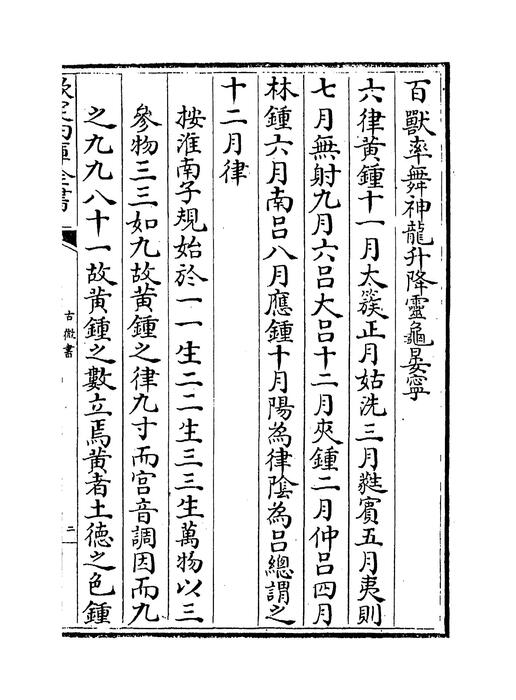 百獸率舞神龍升降靈龜晏寧
六律黃鍾十一月太簇正月姑洗三月蕤賓五月夷則
七月無射九月六呂大呂十二月夾鍾二月仲呂四月
林鍾六月南呂八月應鍾十月陽為律陰為呂總謂之
十二月律
按淮南子規始於一一生二二生三三生萬物以三
參物三三如九故黃鍾之律九寸而宮音調因而九
之九九八十一故黃鍾之數立焉黃者土德之色鍾
欽定四庫全書
古微書
二